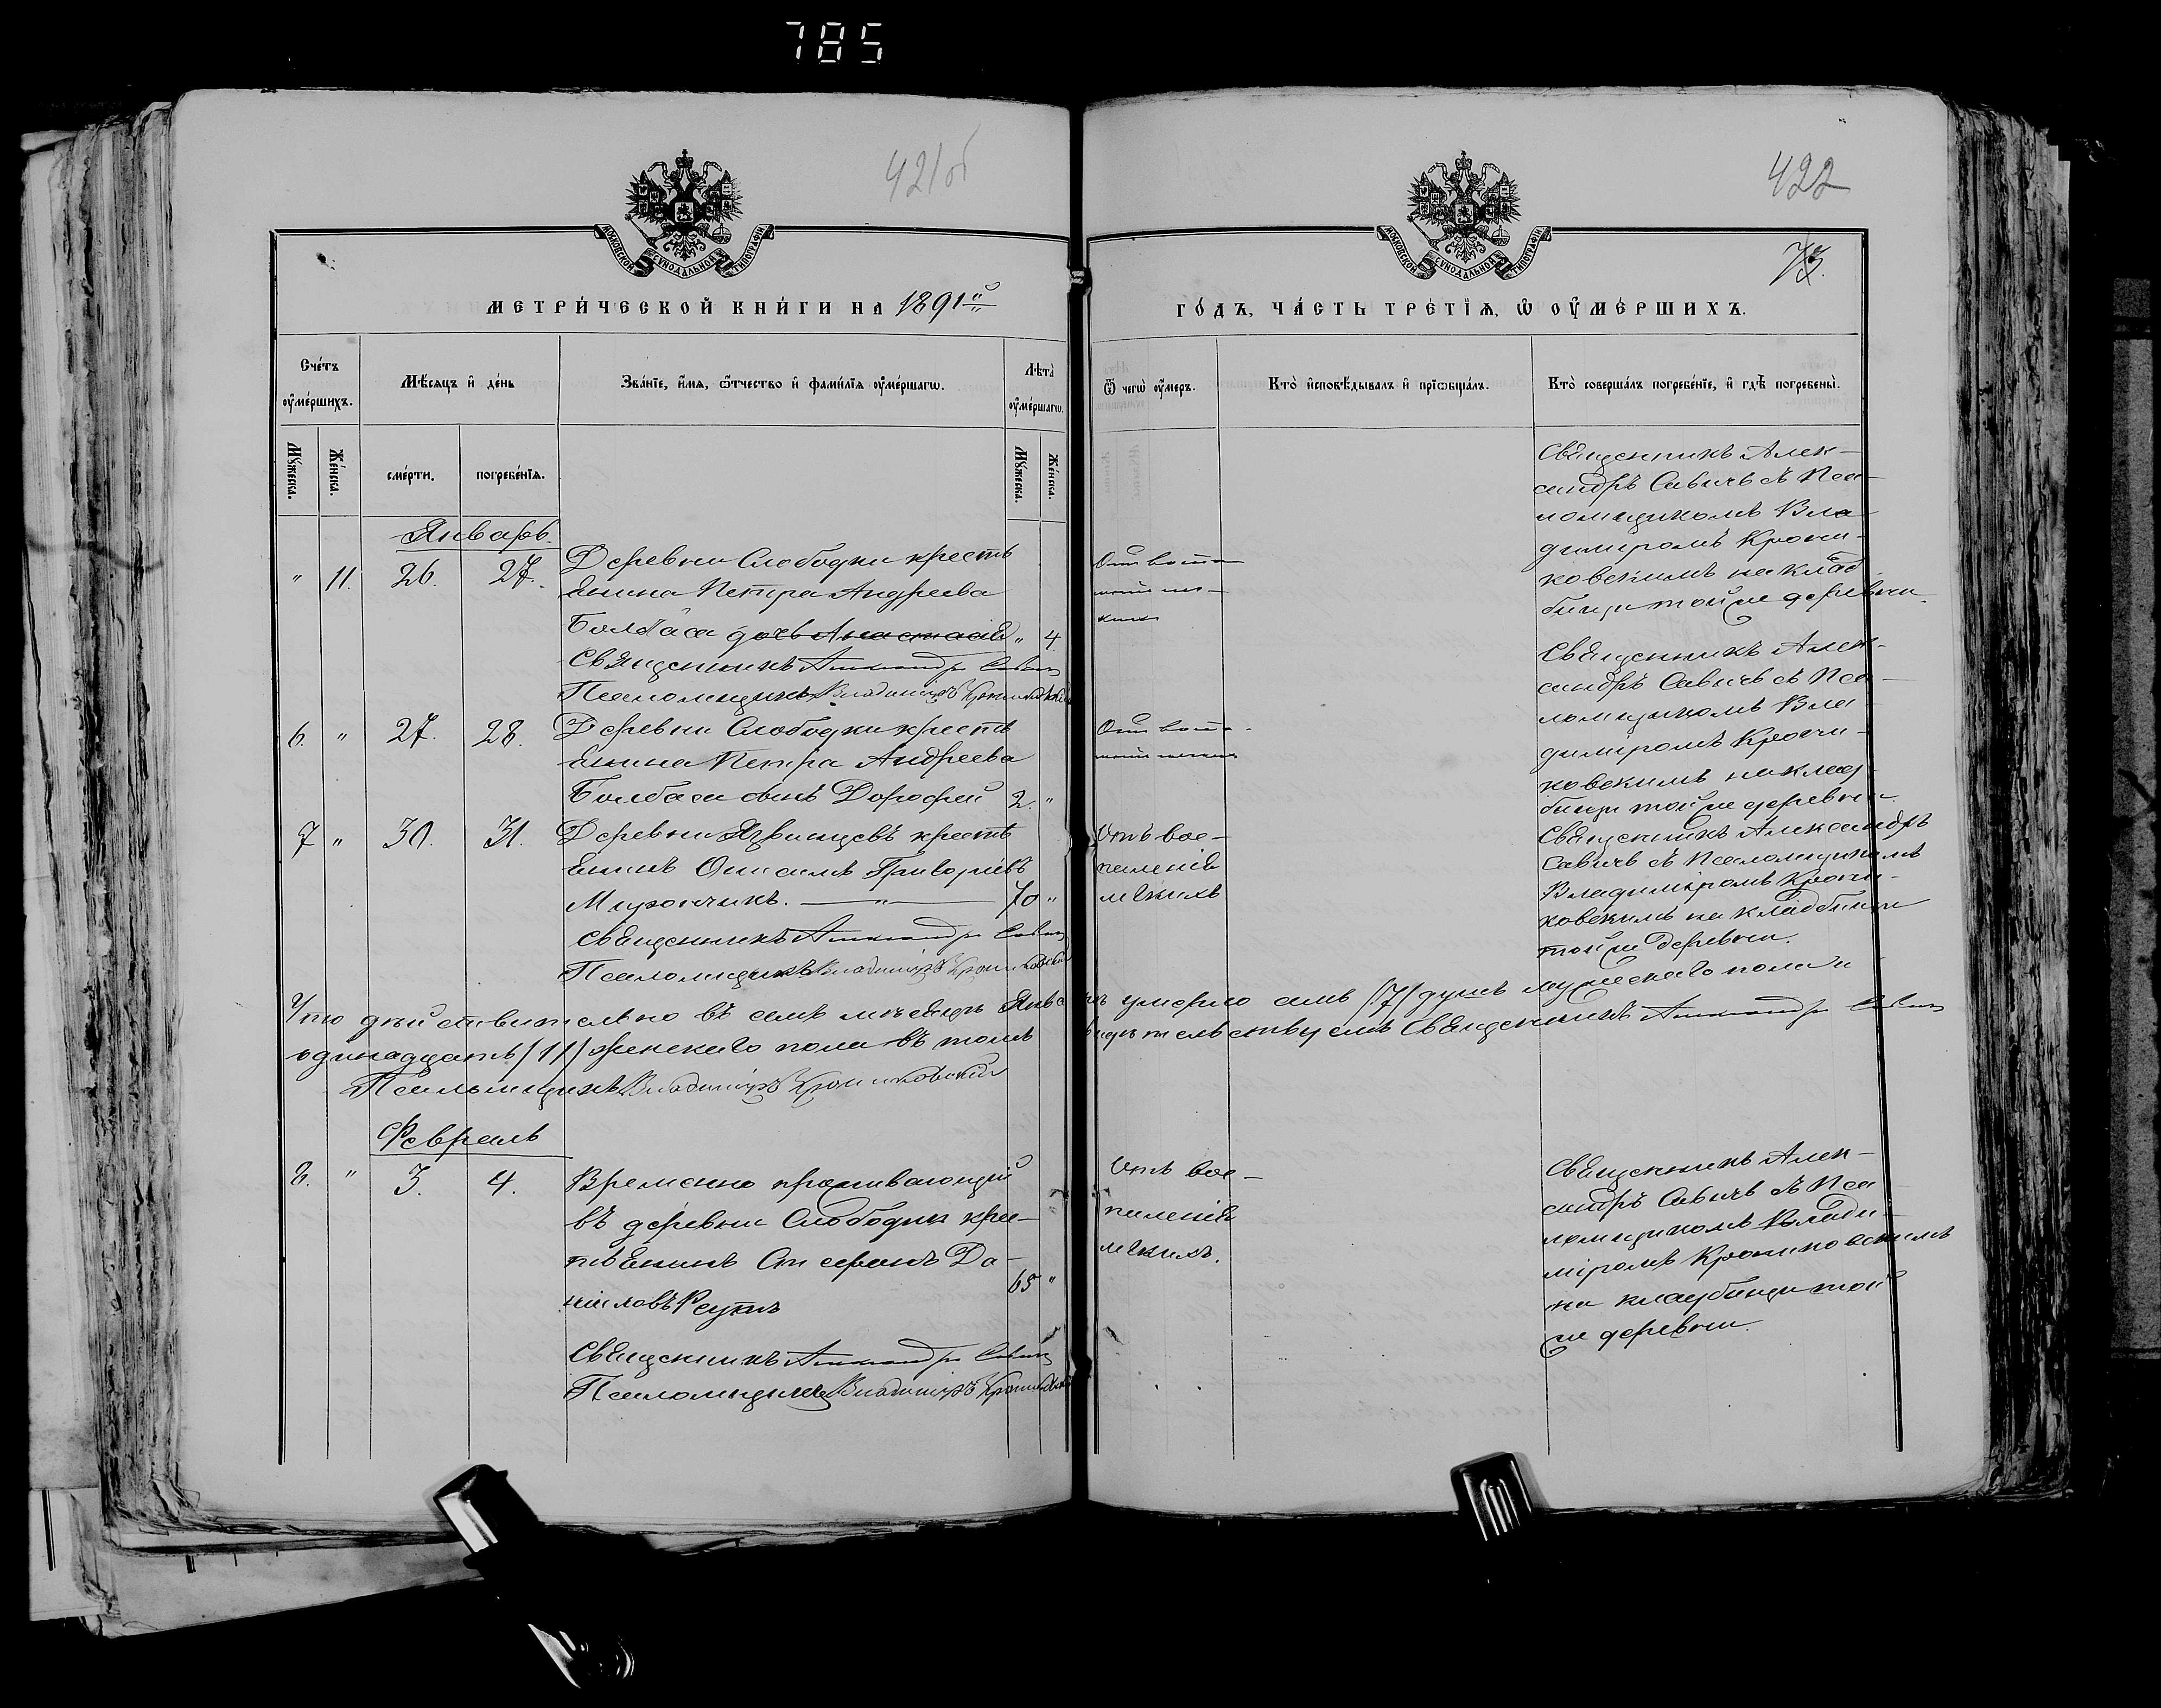 785
421об
422
73.
МОСКОВСКОЙ СѴНОДАЛЬНОЙ ТИПОГРАФІИ
МОСКОВСКОЙ СѴНОДАЛЬНОЙ ТИПОГРАФІИ
МЕТРИ́ЧЕСКОЙ КНИ́ГИ НА 1891й
ГО́ДЪ, ЧА́СТЬ ТРЕ́ТІѦ, Ѡ ОУ҆МЕ́РШИХЪ.
Сче́тъ оу҆ме́ршихъ.
Мѣ́сяцъ и҆ де́нь
Зва́нїе, и҆́мѧ, ѻ҆́тчество и҆ фами́лїѧ оу҆ме́ршагѡ.
Лѣ́та оу҆ме́ршагѡ.
Ѿ чегѡ̀ оу҆́меръ.
Кто̀ и҆сповѣ́дывалъ и҆ прїѡбща́лъ.
Кто̀ соверша́лъ погребе́нїе, и҆ гдѣ̀ погребены̀.
Мꙋ́жеска.
Же́нска.
сме́рти.
погребе́нїѧ.
Мꙋ́жеска.
Же́нска.
Январь.
" 11. 26. 27.
Деревни Слободки кресть
янина Петра Андреева
Болбаса дочь Анастасія " 4
Священникъ Александръ Савичъ
Псаломщикъ Владиміръ Крониковскій
Священникъ Алек-
сандръ Савичъ съ Пса-
ломщикомъ Вла-
диміромъ Крони-
ковскимъ на клад
бищѣ той же деревни.
6. " 27. 28.
Деревни Слободки кресть
янина Петра Андреева
Болбаса сынъ Дорофей 2. "
Священникъ Алек-
сандръ Савичъ съ Пса-
ломщикомъ Вла-
диміромъ Крони-
ковскимъ на клад-
бищѣ той же деревни.
7 " 30. 31.
Деревни Язвинцевъ кресть
янинъ Онисимъ Григорьевъ
Мирончикъ. — " — 70 "
Священникъ Александръ Савичъ
Псаломщикъ Владиміръ Крониковскій
Отъ вос-
паленія
легкихъ
Священникъ Александръ
Савичъ съ Псаломщикомъ
Владиміромъ Крони-
ковскимъ на кладбищѣ
той же деревни.
Что дѣйствительно въ семъ мѣсяцѣ Январѣ умерло семь /7/ душъ мужескаго пола и
одинадцать /11/ женскаго пола въ томъ свидѣтельствуемъ Священникъ Александръ Савичъ
Псаломщикъ Владиміръ Крониковскій
Февраль
8. " 3. 4.
Временно проживающій
въ деревни Слободки крес-
тьянинъ Стефанъ Да-
ниловъ Реутъ 65 "
Священникъ Александръ Савичъ
Псаломщикъ Владиміръ Крониковскій
Отъ вос-
паленія
легкихъ.
Священникъ Алек-
сандръ Савичъ съ Пса
ломщикомъ Влади-
міромъ Крониковскимъ
на кладбищѣ той
же деревни.